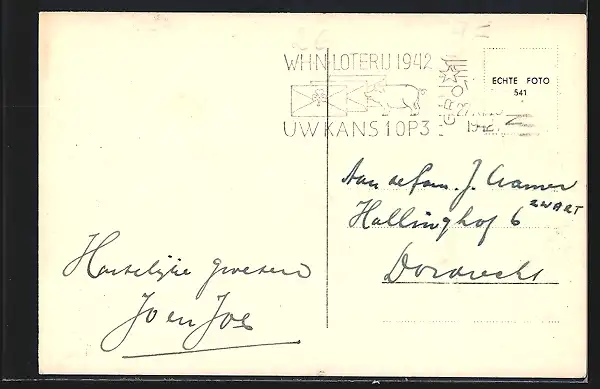 WHN LOTERIJ 1942
UW KANS 1 OP 3
ECHTE FOTO
541
Aan de fam. J. Cramer
Hallinghof 6 ZWART
Dordrecht
Hartelijke groeten
Jo en Joe